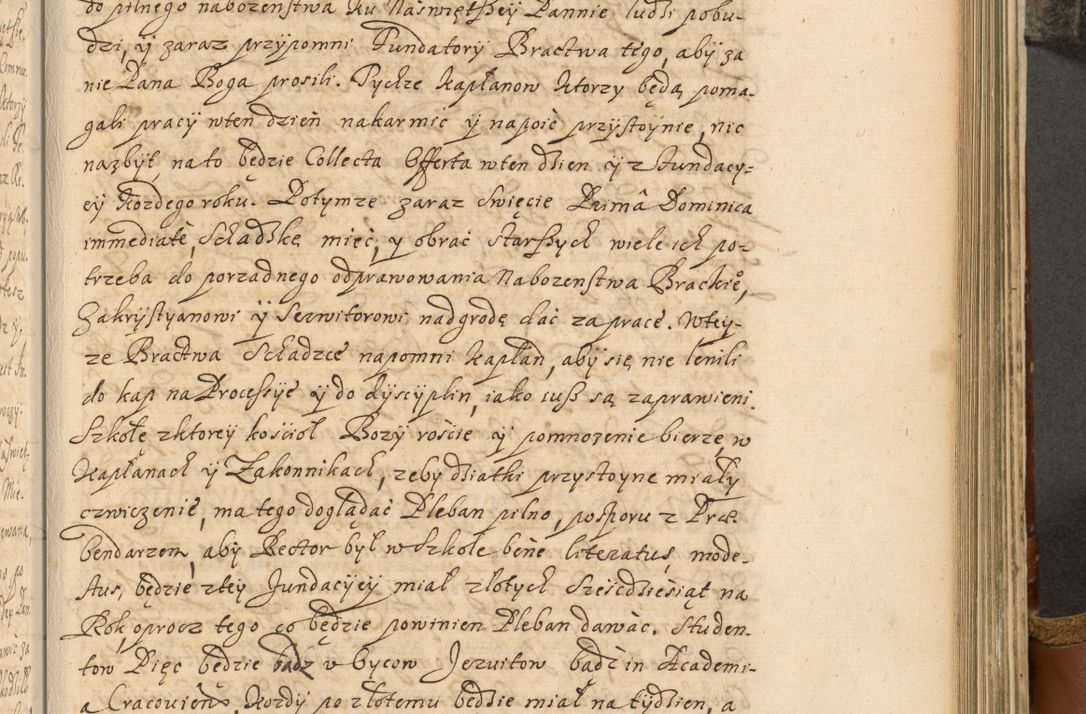 do pilnego nabozenstwa Ku Naswiętßey Pannie ludzi pobu-
dzi, ÿ zaraz przÿpomni Fundatorÿ Bractwa tego, abÿ za
nie Pana Boga prosili. Tychze Kapłanow Ktorzy będą poma-
gali pracÿ wten dzień nakarmic ÿ napoić przÿstoÿnie, nic
nazbÿt, na to będzie Collecta Offerta wten dzien ÿ z Fundacÿ-
eÿ Kozdego roku. Potymze zaraz Swięcie Primâ Dominica
immediatè, Schadzkę mieć, y obrać Starßych wiele ich po-
trzeba do porzadnego odprawowania Nabozenstwa Brackie,
Zakrÿstyanowi ÿ Serwitorowi nadgrodę dać za prace. Wteÿ-
ze Bractwa Schadzce napomni Kapłan, abÿ się nie lenili
do kap na Processÿe ÿ do dÿscÿplin, iako iuß są zaprawieni.
Szkołę zktoreÿ kosciół Bozÿ roście ÿ pomnozenie bierze, w
Kapłanach ÿ Zakonnikach, zeby dziatki przystoyne miałÿ
czwiczenie, ma tego doglądać Pleban pilno, pospołu z Præ
bendarzem, aby Rector był w Szkole bene literatus, mode-
stus, będzie zteÿ Fundacÿeÿ miał złotych Szescdziesiąt na
Rok, oprocz tego co będzie powinien Pleban dawać. Studen-
tow Pięc będzie bądz w oycow Jezuitow bądź in Academi-
a Cracouien, Kozdÿ po złotemu będzie miał na tÿdzien, a